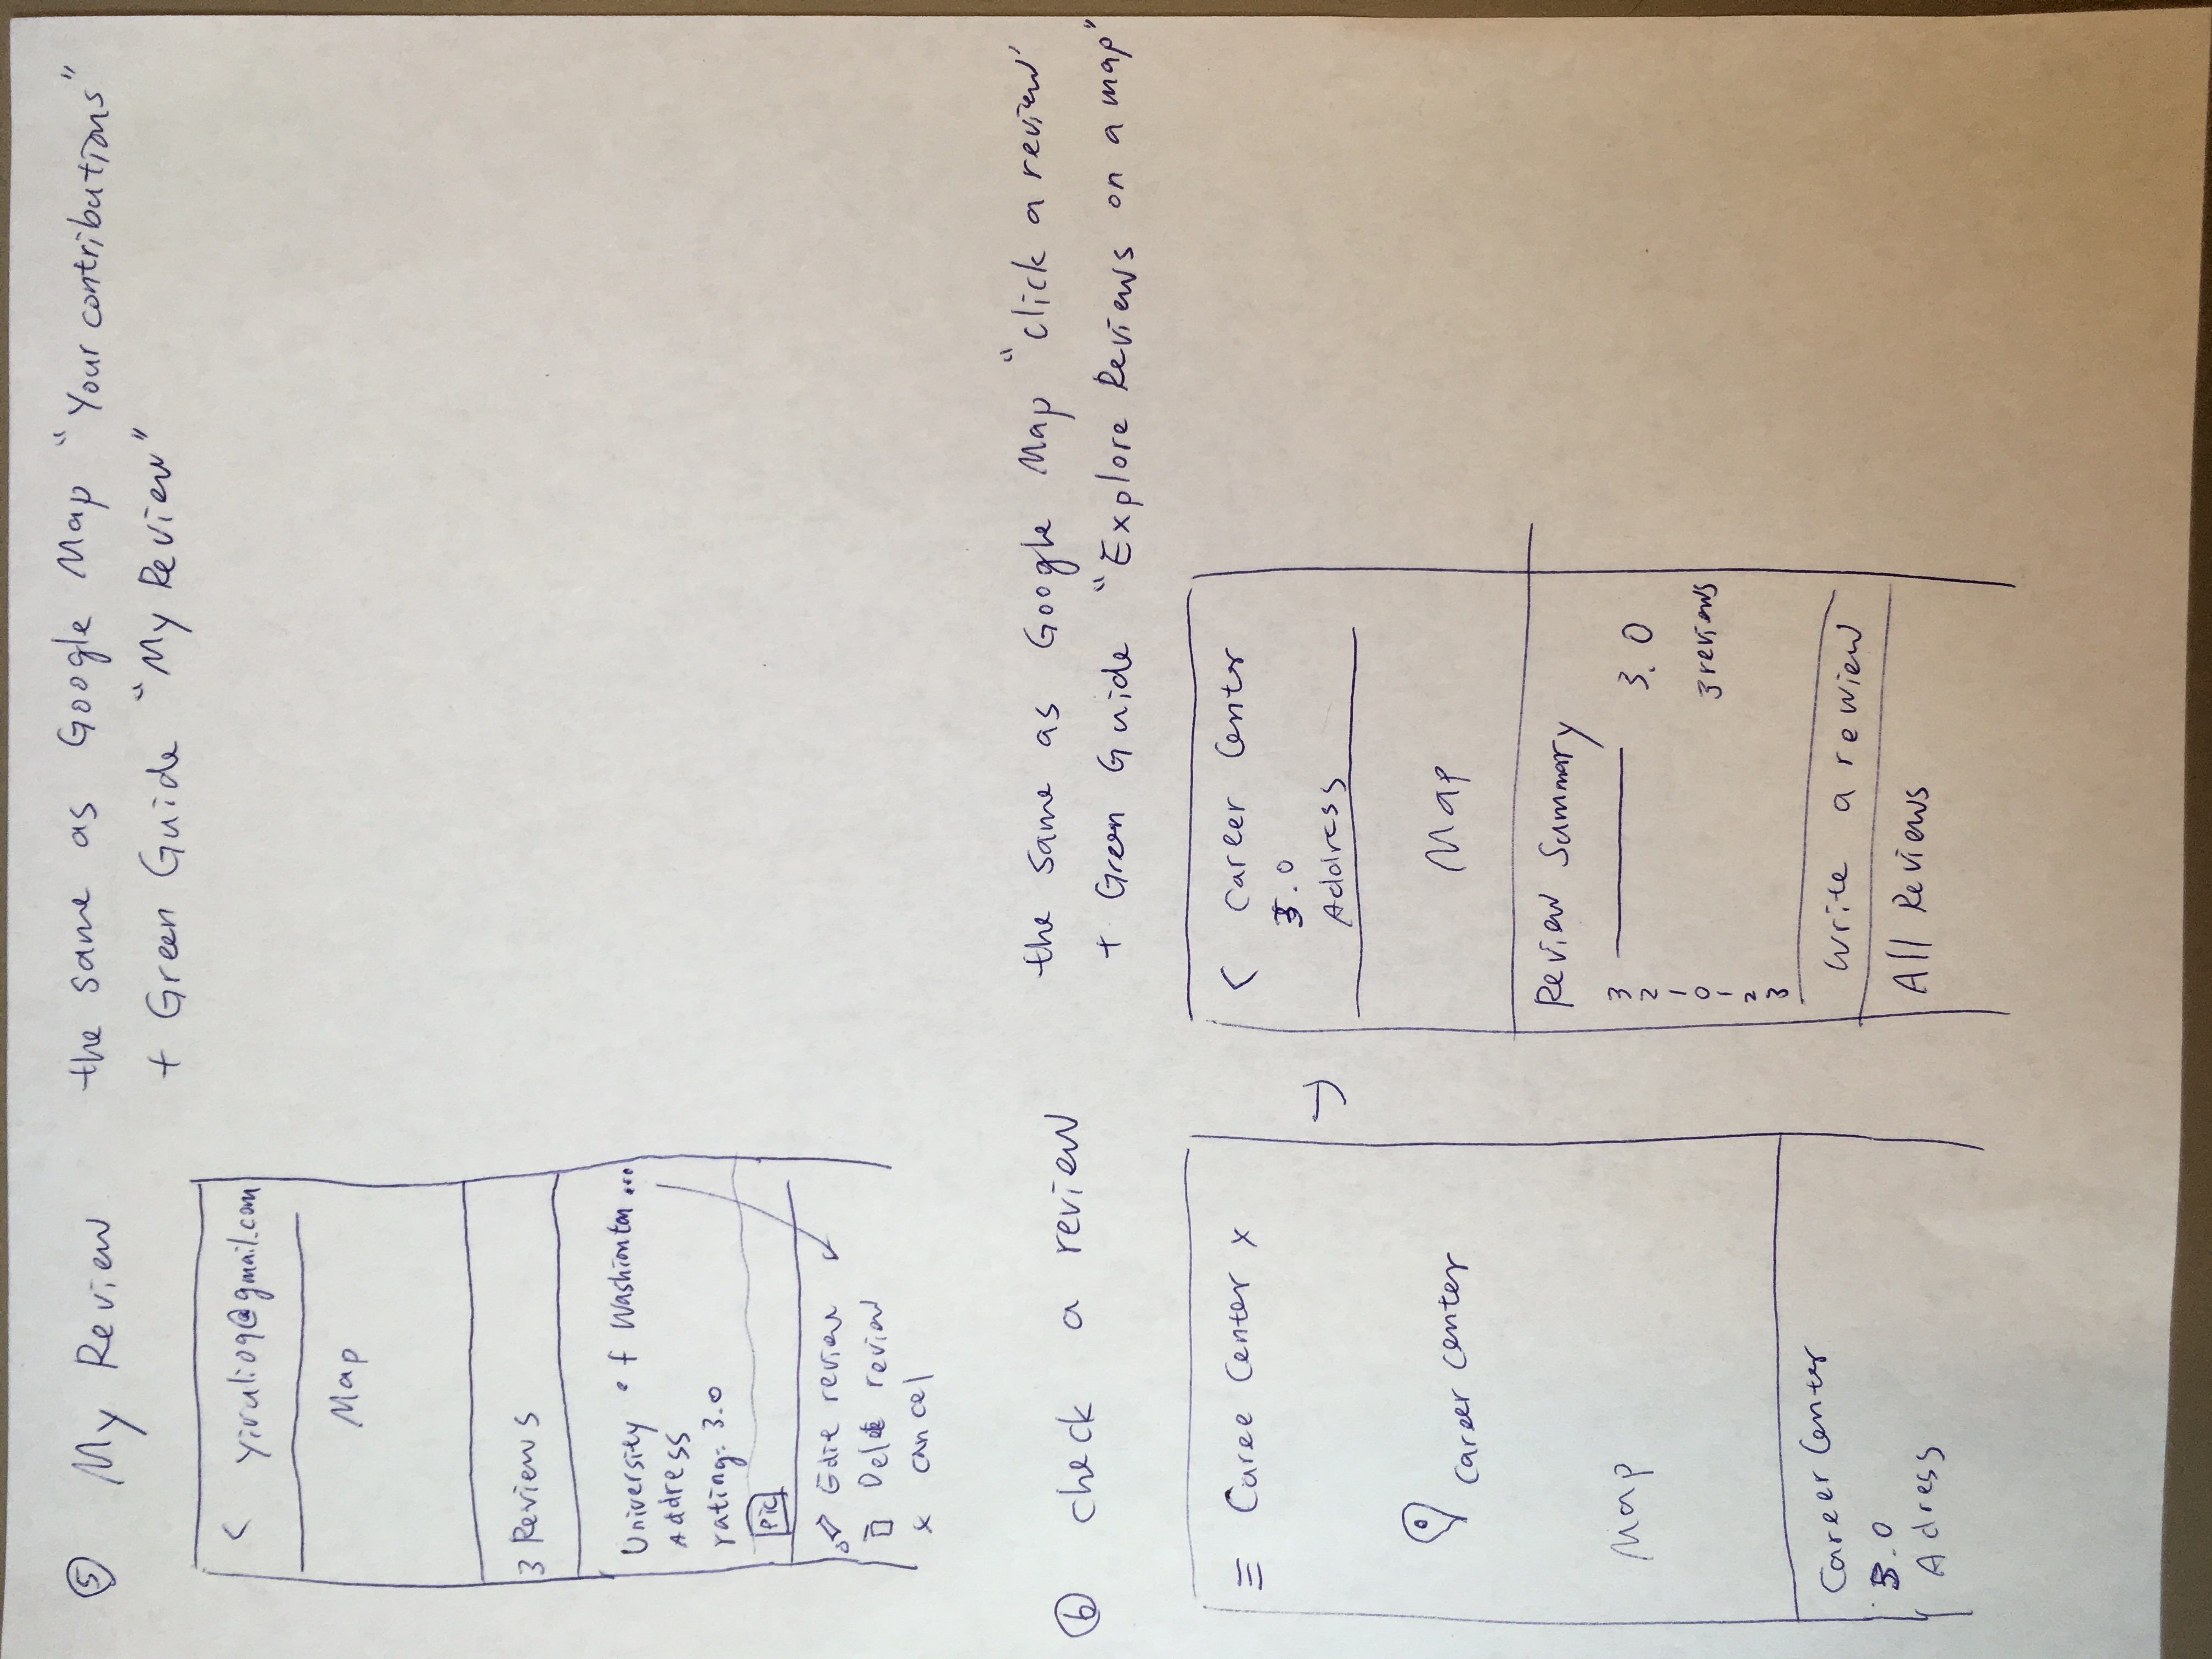 5 My Review the same as Google Map "Your contributions"
+ Green Guide "My Review"
< yiruli09@gmail.com
Map
3 Reviews
University of Washionton ...
Address
rating: 3.0
Pic
Edit review
Delete review
x cancel
6 check a review the same as Google Map "click a review'
+ Green Guide "Explore Reviews on a map"
≡ Caree Center x
Career Center
Map
Career Center
3.0
Adress
→
< Career Center
3.0
Address
Map
Review Summary
3
2
1
0
1
2
3
3.0
3 reviews
Write a rewiew
All Reviews